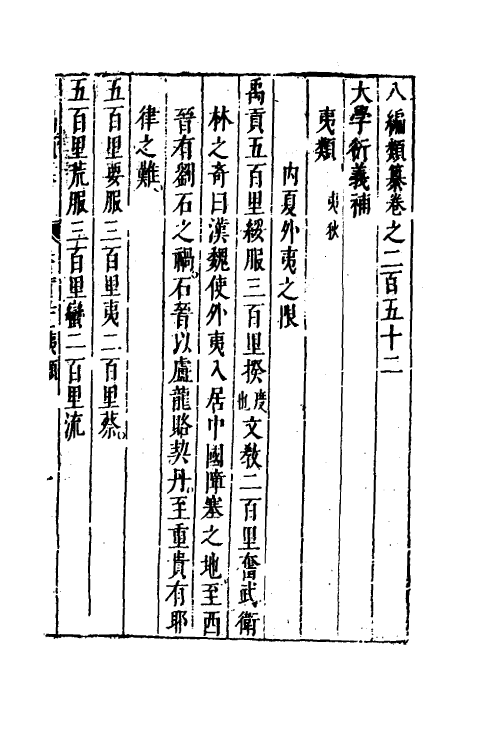 八編類纂卷之二百五十二
大學衍義補
夷類 夷狄
內夏外夷之限
禹貢五百里綏服三百里揆度也文教二百里奮武衛
林之奇曰漢魏使外夷入居中國障塞之地至西
晉有劉石之禍石晉以盧龍賂契丹至重貴有耶
律之難
五百里要服三百里夷二百里蔡
五百里荒服三百里蠻二百里流